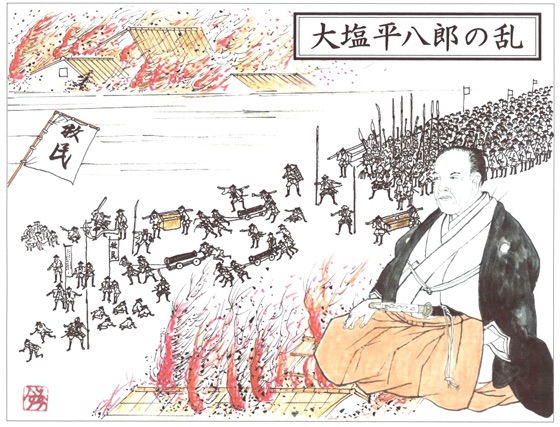 大塩平八郎の乱
救民